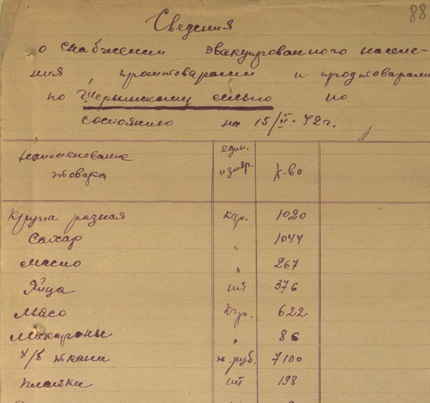 88
Сведения
о снабжении эвакуированного населе-
ния, промтоварами и продтоварами
по Чернинскому сельпо по
состоянию на 15/II-42г.
наименование товара | един. измер. | К-во
Крупа разная | кгр. | 1020
Сахар | " | 1044
Масло | " | 267
Яйца | шт | 376
Мясо | кгр. | 622
Макароны | " | 86
х/б ткани | т.руб. | 7100
платки | шт | 198